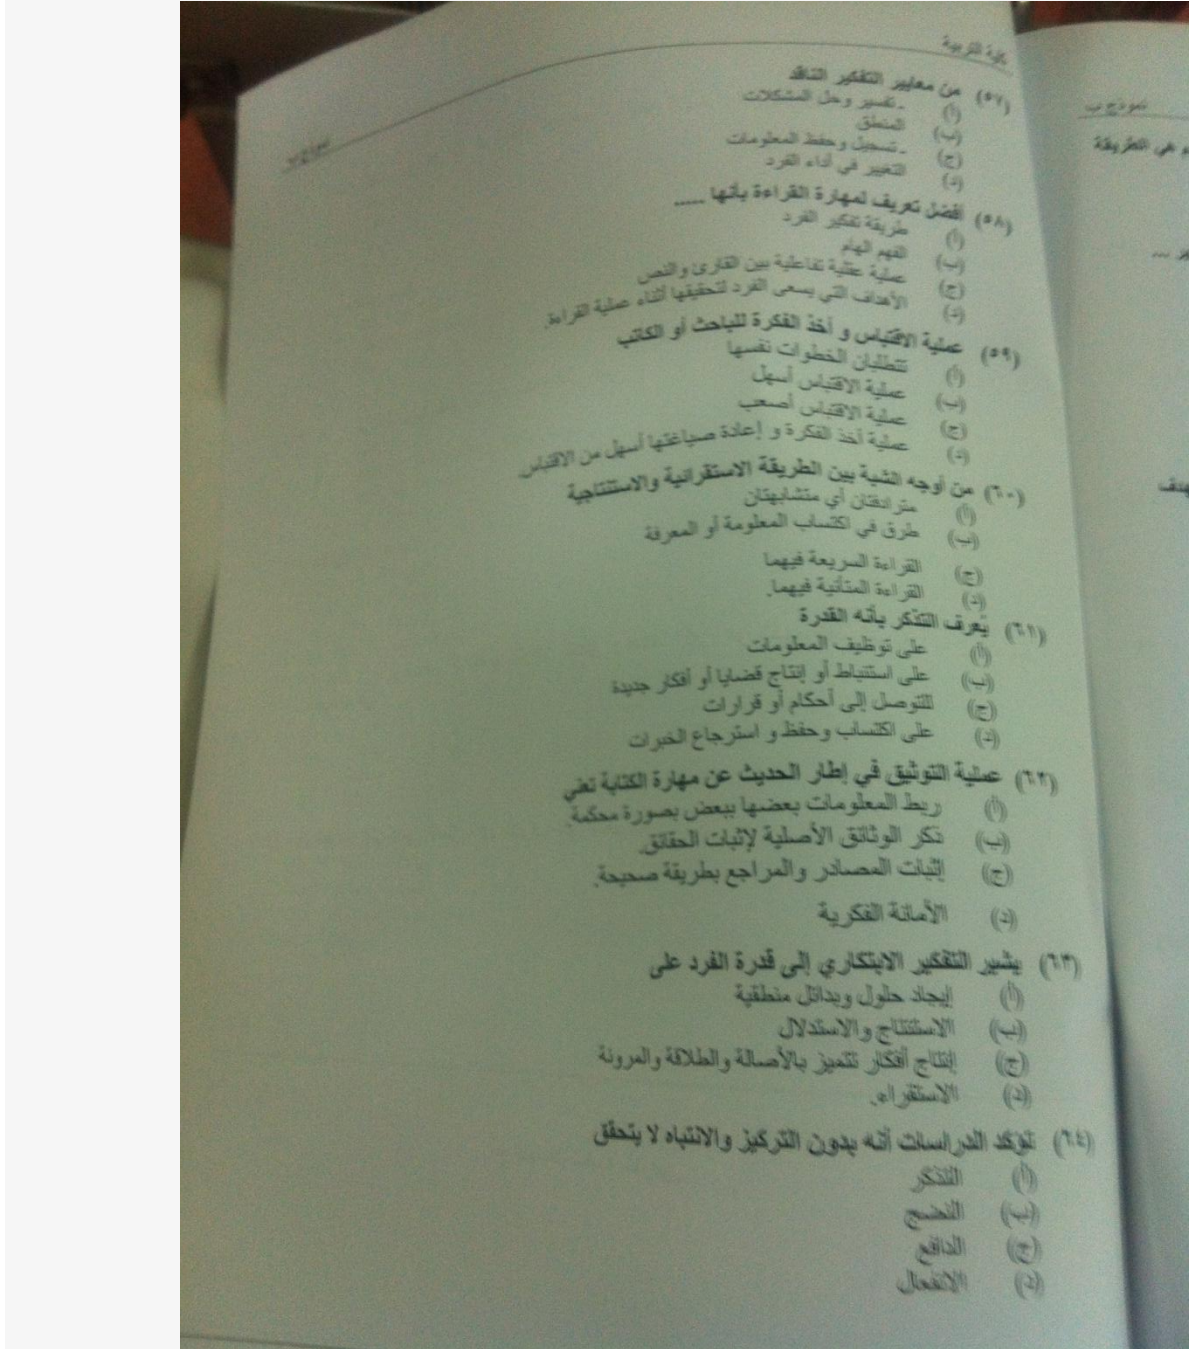 كلية التربية
نموذج ب
(٥٧) من معايير التفكير الناقد
(أ) تفسير وحل المشكلات
(ب) المنطق
(ج) تسجيل وحفظ المعلومات
(د) التغيير في أداء الفرد
(٥٨) أفضل تعريف لمهارة القراءة بأنها .....
(أ) طريقة تفكير الفرد
(ب) الفهم الهام
(ج) عملية عقلية تفاعلية بين القارئ والنص
(د) الأهداف التي يسعى الفرد لتحقيقها أثناء عملية القراءة.
(٥٩) عملية الاقتباس و أخذ الفكرة للباحث أو الكاتب
(أ) تتطلبان الخطوات نفسها
(ب) عملية الاقتباس أسهل
(ج) عملية الاقتباس أصعب
(د) عملية أخذ الفكرة و إعادة صياغتها أسهل من الاقتباس.
(٦٠) من أوجه الشبة بين الطريقة الاستقرائية والاستنتاجية
(أ) مترادفتان أي متشابهتان
(ب) طرق في اكتساب المعلومة أو المعرفة
(ج) القراءة السريعة فيهما
(د) القراءة المتأنية فيهما.
(٦١) يُعرف التذكر بأنه القدرة
(أ) على توظيف المعلومات
(ب) على استنباط أو إنتاج قضايا أو أفكار جديدة
(ج) للتوصل إلى أحكام أو قرارات
(د) على اكتساب وحفظ و استرجاع الخبرات
(٦٢) عملية التوثيق في إطار الحديث عن مهارة الكتابة تعني
(أ) ربط المعلومات بعضها ببعض بصورة محكمة.
(ب) ذكر الوثائق الأصلية لإثبات الحقائق.
(ج) إثبات المصادر والمراجع بطريقة صحيحة.
(د) الأمانة الفكرية
(٦٣) يشير التفكير الابتكاري إلى قدرة الفرد على
(أ) إيجاد حلول وبدائل منطقية
(ب) الاستنتاج والاستدلال
(ج) إنتاج أفكار تتميز بالأصالة والطلاقة والمرونة
(د) الاستقراء.
(٦٤) تؤكد الدراسات أنه بدون التركيز والانتباه لا يتحقق
(أ) التذكر
(ب) النضج
(ج) الدافع
(د) الانفعال
نموذج ب
هي الطريقة